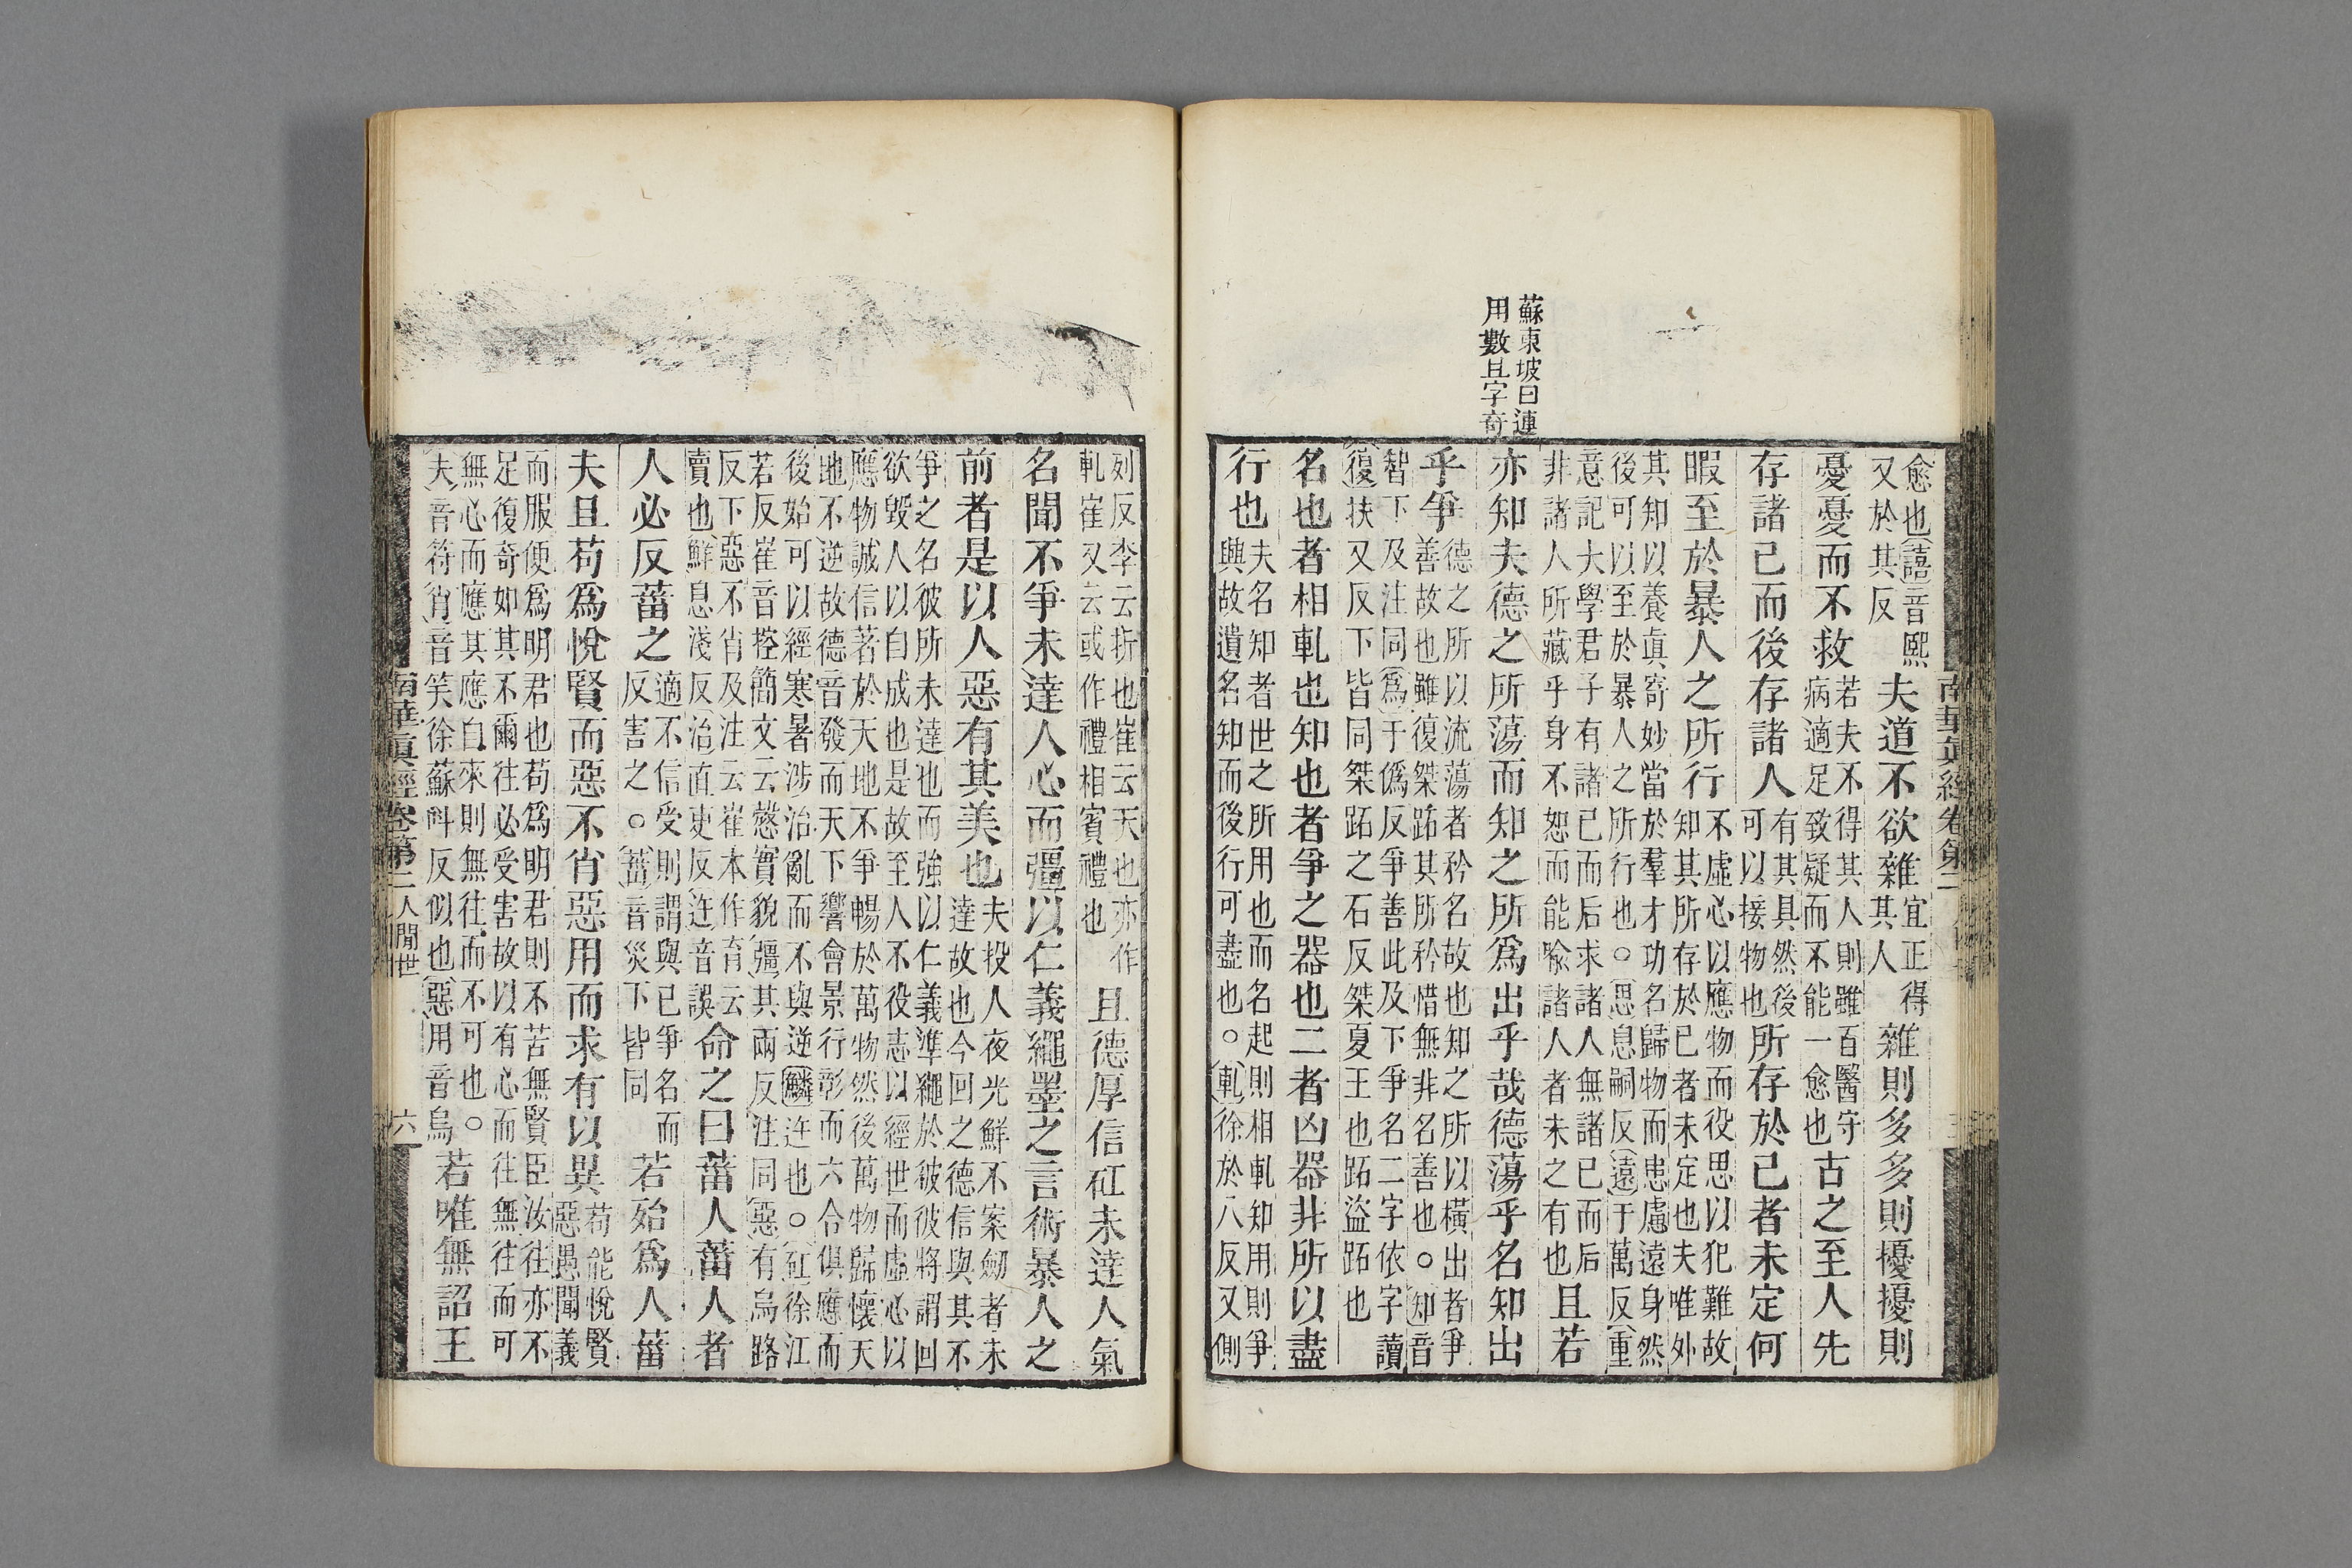 蘇東坡曰連
用數且字奇
南華眞經卷第二
愈也(譆)音熙
又於其反
夫道不欲雜
宜正得
其人
雜則多多則擾擾則
憂憂而不救
若夫不得其人則雖百醫守
病適足致疑而不能一愈也
古之至人先
存諸己而後存諸人
有其具然後
可以接物也
所存於己者未定何
暇至於暴人之所行
不虛心以應物而役思以犯難故
知其所存於已者未定也夫唯外
其知以養眞寄妙當於羣才功名歸物而患慮遠身然
後可以至於暴人之所行也○(思)息嗣反(遠)于萬反(重
意記大學君子有諸已而后求諸人無諸已而后
非諸人所藏乎身不恕而能喻諸人者未之有也
且若
亦知夫德之所蕩而知之所爲出乎哉德蕩乎名知出
乎爭
德之所以流蕩者矜名故也知之所以橫出者爭
善故也雖復桀跖其所矜惜無非名善也○(知)音
智下及注同(爲)于僞反爭善此及下爭名二字依字讀
(復)扶又反下皆同桀跖之石反桀夏王也跖盜跖也
名也者相軋也知也者爭之器也二者凶器非所以盡
行也
夫名知者世之所用也而名起則相軋知用則爭
興故遺名知而後行可盡也○(軋)徐於八反又側
列反李云折也崔云夭也亦作
軋崔又云或作禮相賓禮也
且德厚信矼未達人氣
名聞不爭未達人心而彊以仁義繩墨之言術暴人之
前者是以人惡有其美也
夫投人夜光鮮不案劒者未
達故也今回之德信與其不
爭之名彼所未達也而強以仁義準繩於彼彼將謂回
欲毀人以自成也是故至人不役志以經世而虛心以
應物誠信著於天地不爭暢於萬物然後萬物歸懷天
地不逆故德音發而天下響會景行彰而六合俱應而
後始可以經寒暑涉治亂而不與逆鱗迕也○(矼)徐江
若反崔音控簡文云慤實貌(彊)其兩反注同(惡)有烏路
反下惡不肖及注云崔本作育云
賣也(鮮)息淺反(治)直吏反(迕)音誤
命之曰菑人菑人者
人必反菑之
適不信受則謂與己爭名而
反害之○(菑)音災下皆同
若殆爲人菑
夫且苟爲悅賢而惡不肖惡用而求有以異
苟能悅賢
惡愚聞義
而服便爲明君也苟爲明君則不苦無賢臣汝往亦不
足復奇如其不爾往必受害故以有心而往無往而可
無心而應其應自來則無往而不可也○
(夫)音符(肖)音笑徐蘇料反似也(惡)用音烏
若唯無詔王
南華眞經卷第二 人間世 六